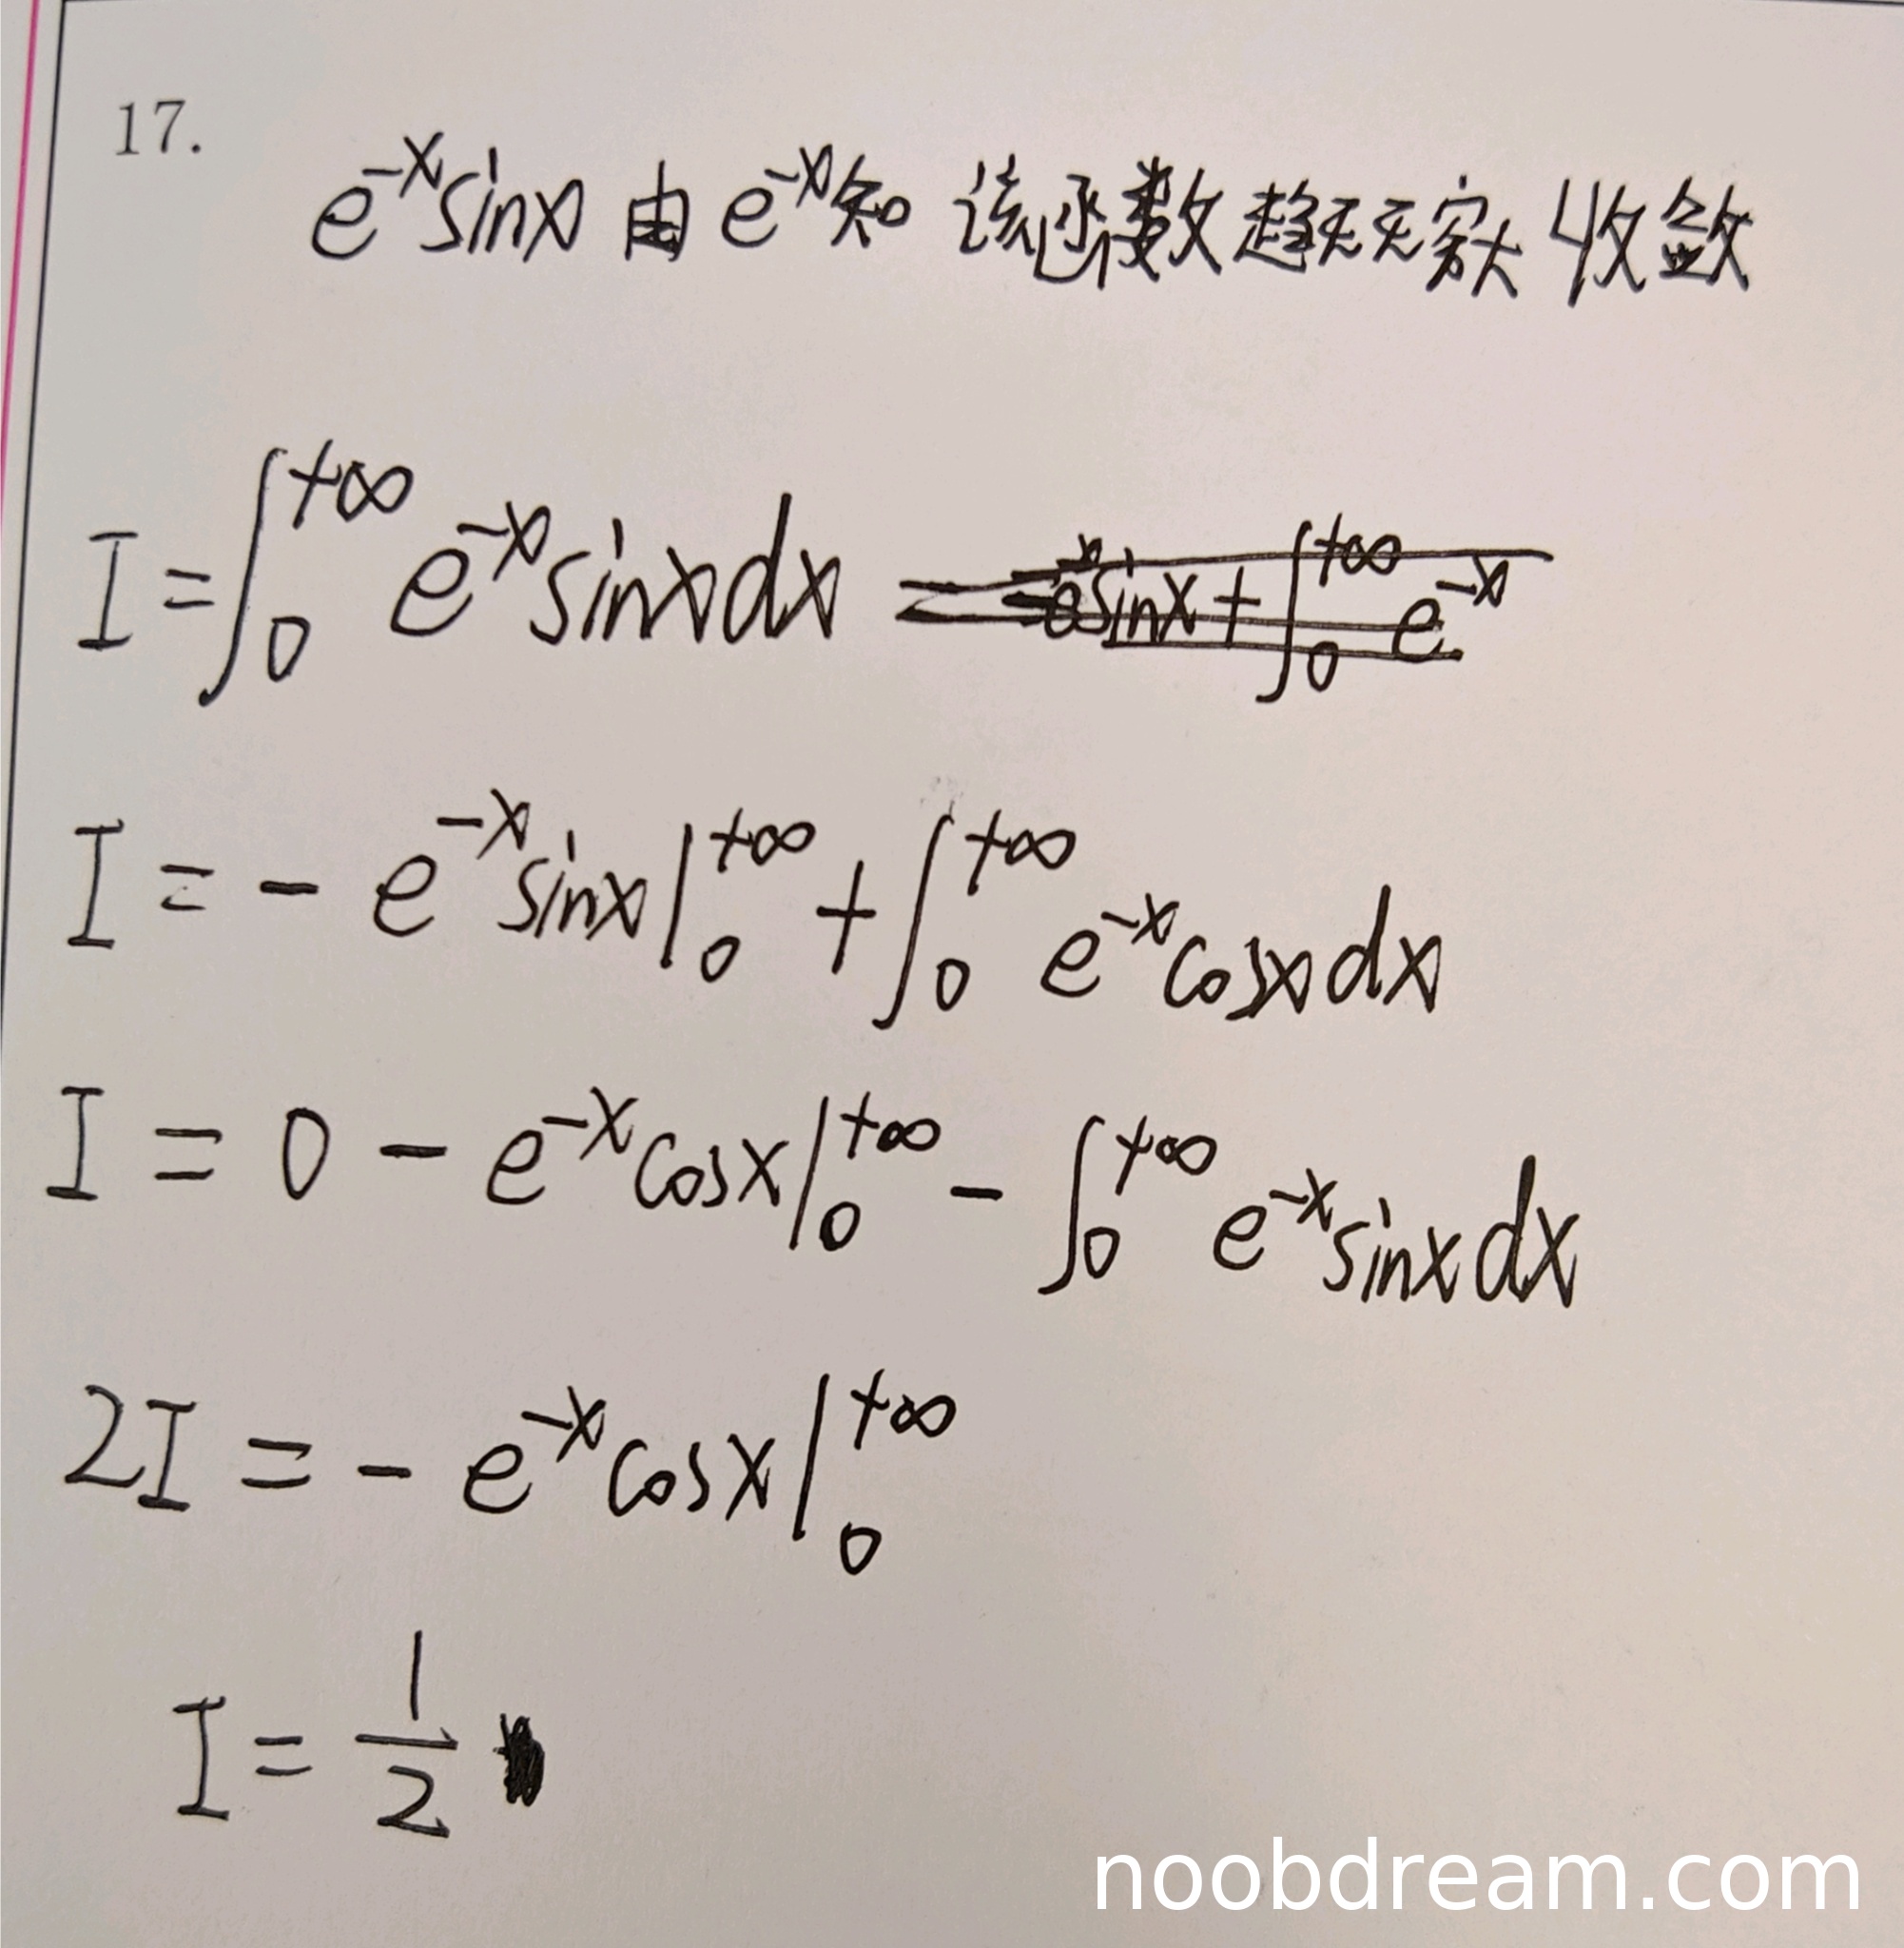 17.
e^{-x}sinx 由 e^{-x}知 该函数趋无穷大 收敛
I = ∫_0^{+∞} e^{-x} sinx dx
I = - e^{-x} sinx |_0^{+∞} + ∫_0^{+∞} e^{-x} cosx dx
I = 0 - e^{-x} cosx |_0^{+∞} - ∫_0^{+∞} e^{-x} sinx dx
2I = - e^{-x} cosx |_0^{+∞}
I = 1/2
noobdream.com